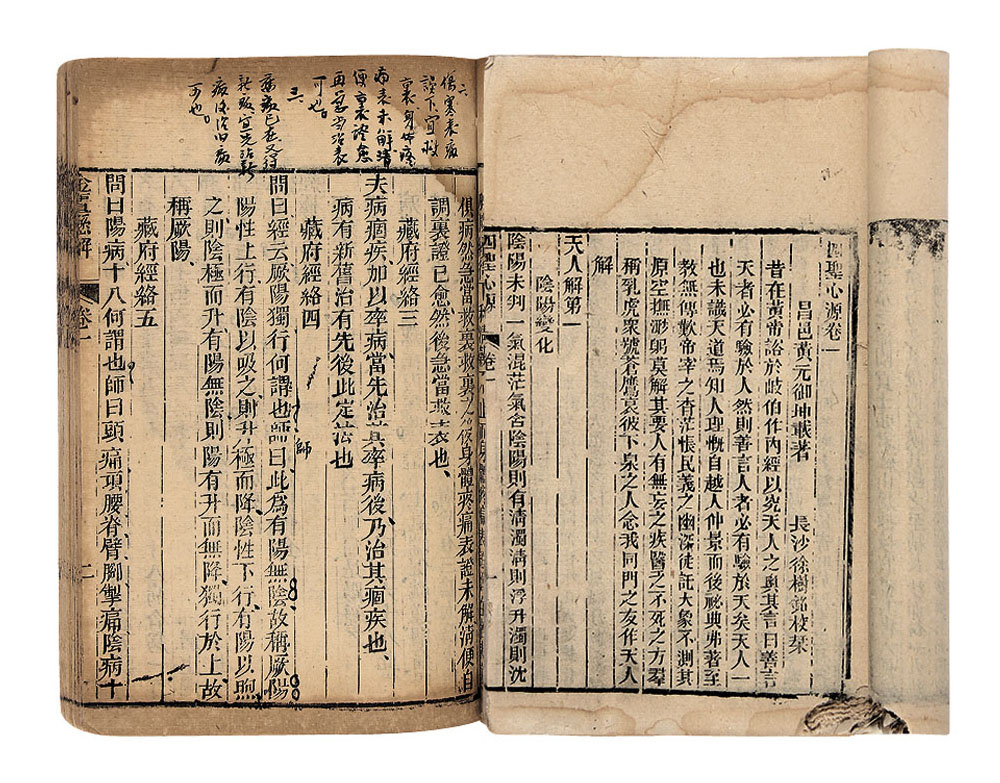 四聖心源卷一
昌邑黃元御坤載著
長沙徐樹銘校栞
昔在黃帝諮於岐伯作內經以究天人之奧其言曰善言
天者必有驗於人然則善言人者必有驗於天矣天人一
也未識天道焉知人理慨自越人仲景而後祕典弗著至
教無傳歎帝宰之杳茫悵民義之幽深徒託大象不測其
原空撫渺躬莫解其要人有無妄之疾醫乏不死之方羣
稱乳虎衆號蒼鷹哀彼下泉之人念我同門之友作天人
解
天人解第一
陰陽變化
陰陽未判一氣混茫氣含陰陽則有清濁清則浮升濁則沈
四聖心源 卷一
二
傷寒表病
誤下宜救
裏身體疼
痛表未解清
便裏證愈
再當治表
可也。
三
痼疾已在又得
新病宜先治新
病後治旧病
可也。
俱病然急當救裏救裏之後身體疼痛表證未解清便自
調裏證已愈然後急當救表也、
藏府經絡三
夫病痼疾加以卒病、當先治其卒病後、乃治其痼疾也、
病有新舊治有先後此定法也
藏府經絡四
師
問曰經云厥陽獨行何謂也師曰此為有陽無陰故稱厥陽
陽性上行、有陰以吸之、則升極而降、陰性下行、有陽以煦
之則陰極而升、有陽無陰則陽有升而無降、獨行於上故
稱厥陽、
藏府經絡五
問曰陽病十八何謂也師曰頭痛項腰脊臂腳掣痛陰病十
卷一
二